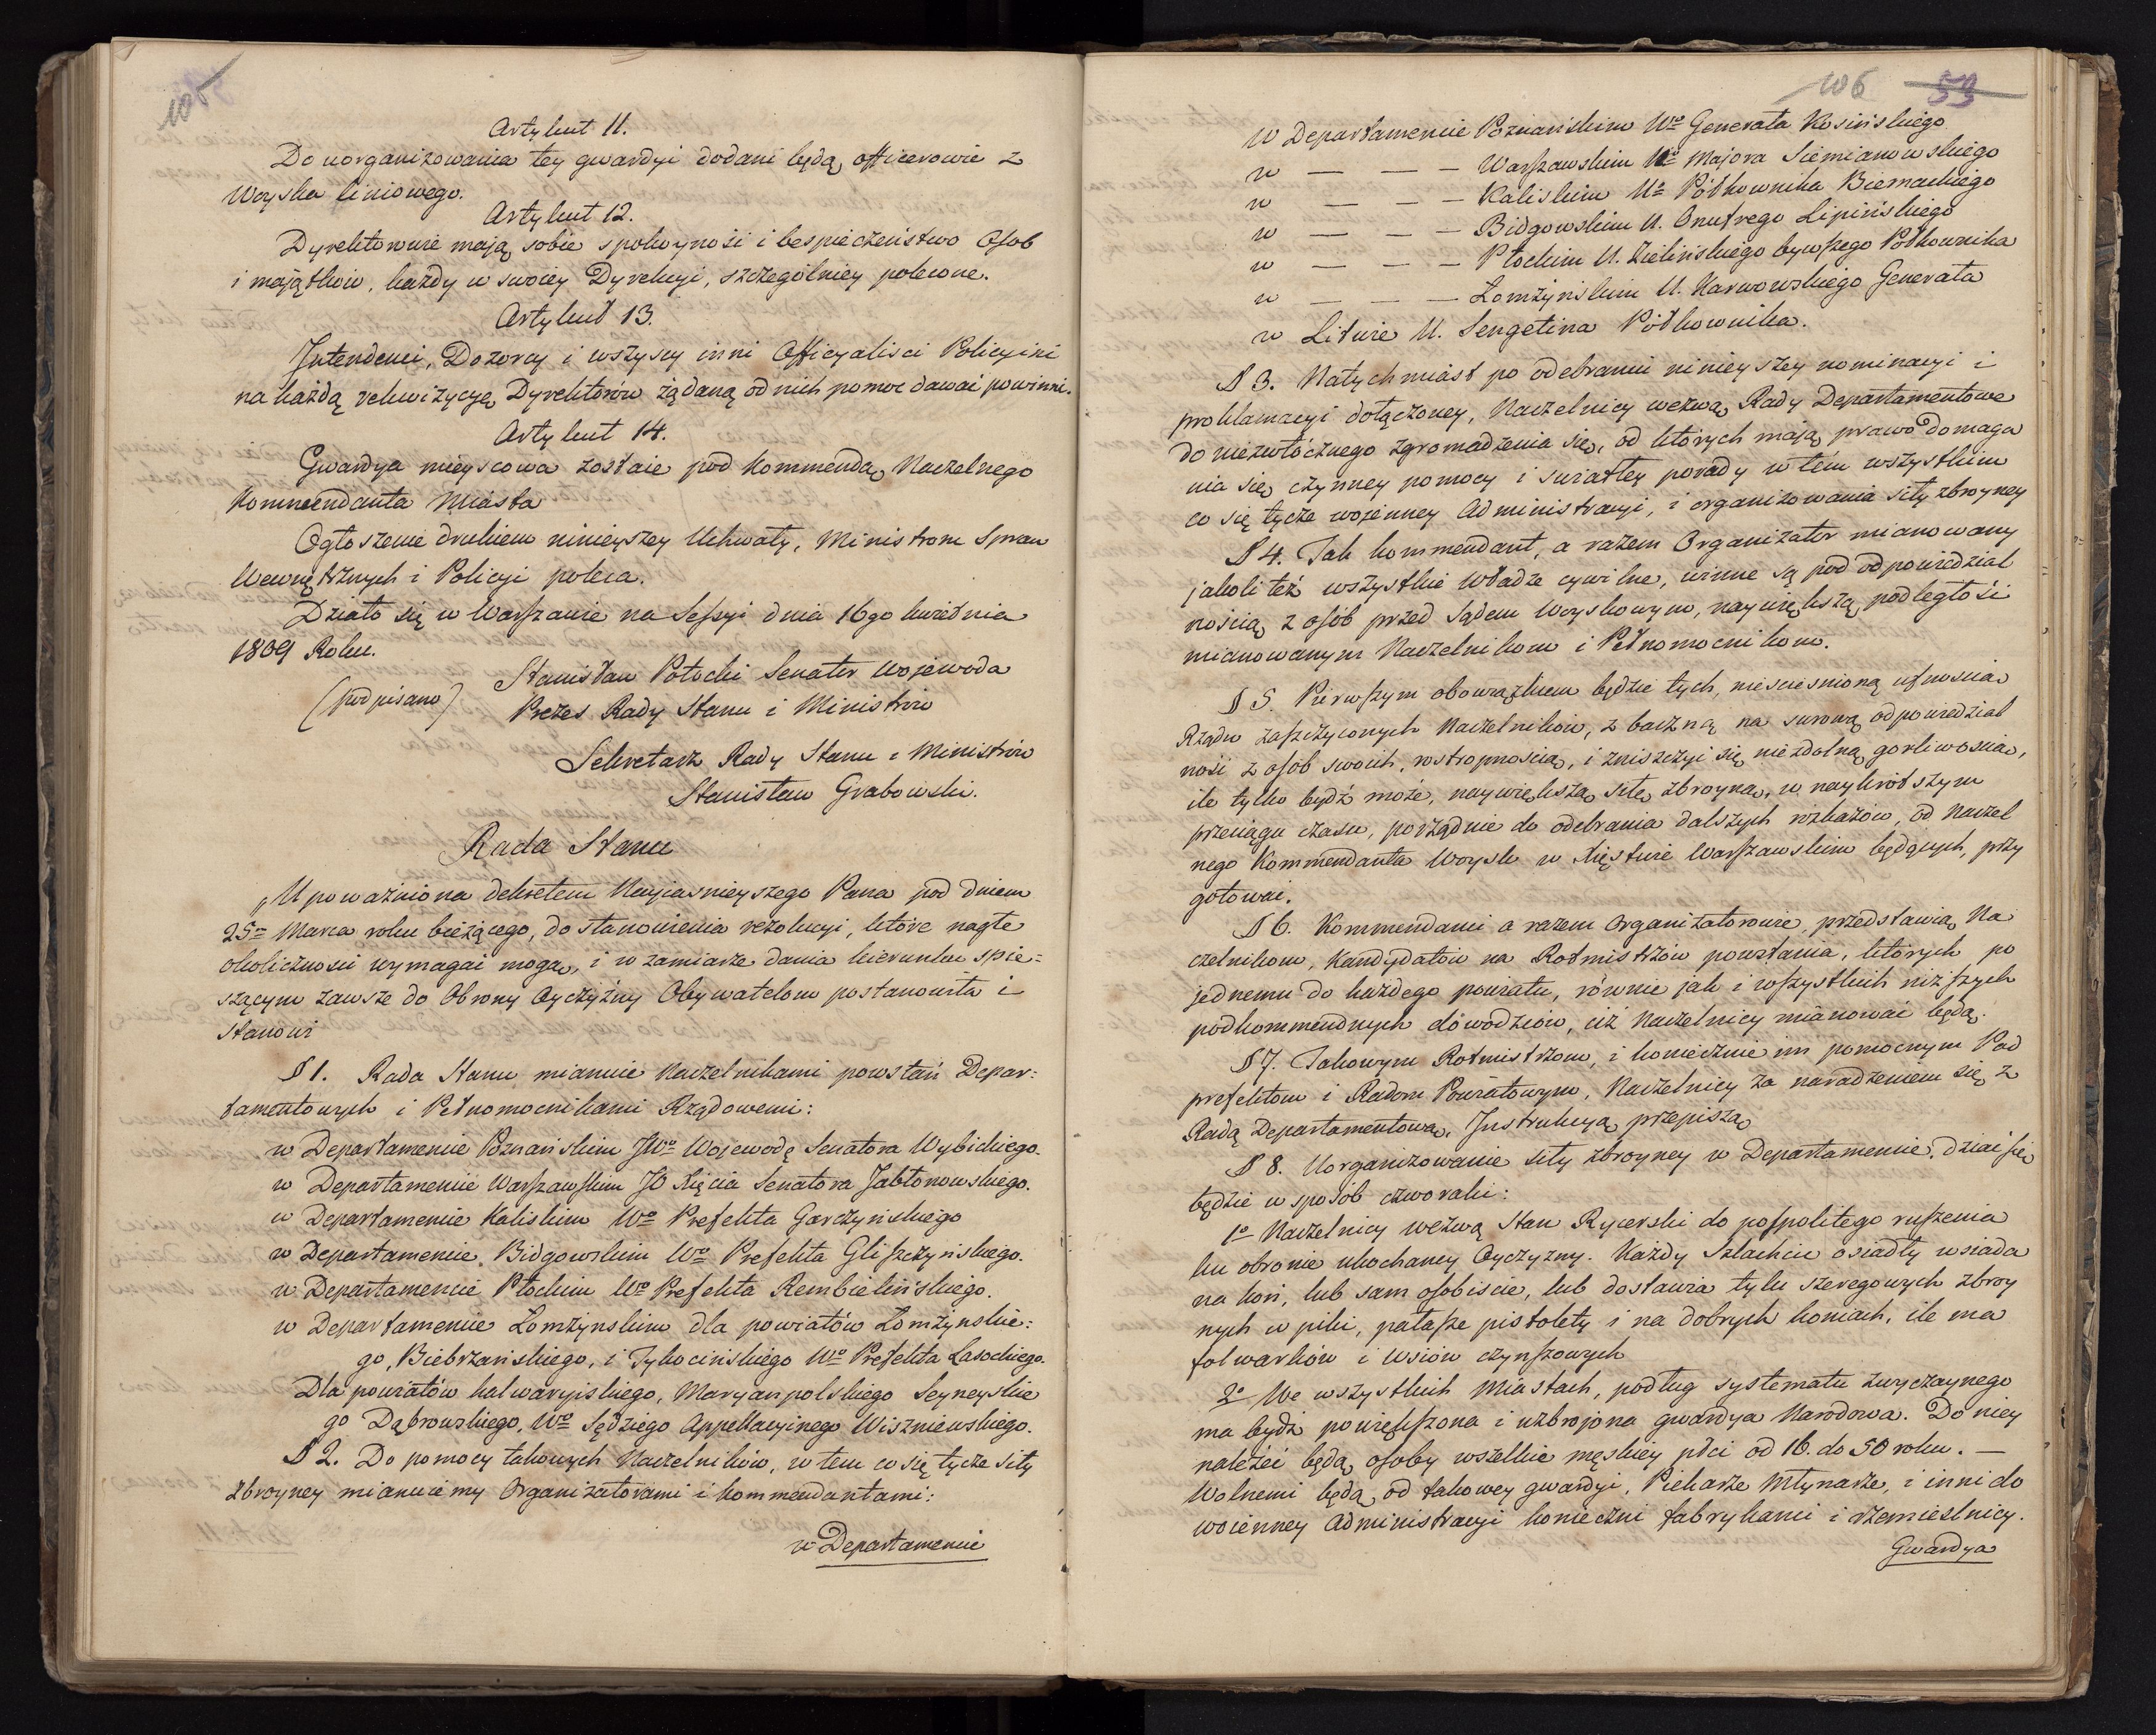 105
Artykuł 11.
Do uorganizowania tey gwardyi dodani będą officerowie z
Woyska liniowego.
Artykuł 12.
Dyrektorowie mają sobie spokoyność i bespieczeństwo Osob
i majątków, każdy w swoiey Dyrekcyi, szczególniey polecone.
Artykuł 13.
Intendenci, Dozorcy i wszyscy inni Officyalisci Policyini
na każdą rekwizycyą Dyrektorów żądaną od nich pomoc dawać powinni.
Artykuł 14.
Gwardya mieyscowa zostaie pod Kommendą Naczelnego
Kommendanta Miasta
Ogłoszenie drukiem ninieyszey Uchwały, Ministrom Spraw
Wewnętrznych i Policyi poleca.
Działo się w Warszawie na Sessyi dnia 16go kwietnia
1809 Roku.
(podpisano) Stanisław Potocki Senator Wojewoda
Prezes Rady Stanu i Ministrów
Sekretarz Rady Stanu i Ministrów
Stanisław Grabowski.
Rada Stanu
Upoważniona dekretem Nayiasnieyszego Pana pod dniem
25= Marca roku bieżącego, do stanowienia rezolucyi, które nagłe
okoliczności wymagać mogą, i w zamiarze dania kierunku spie=
szącym zawsze do Obrony Oyczyzny Obywatelom postanowiła i
stanowi
§ 1. Rada Stanu mianuie Naczelnikami powstań Depar=
tamentowych i Pełnomocnikami Rządowemi:
w Departamencie Poznańskim JWo Wojewodę Senatora Wybickiego.
w Departamencie Warszawskim JO Xięcia Senatora Jabłonowskiego.
w Departamencie Kaliskim Wo Prefekta Garczyńskiego
w Departamencie Bidgowskim Wo Prefekta Gliszczyńskiego.
w Departamencie Płockim Wo Prefekta Rembielińskiego.
w Departamencie Łomżynskim dla powiatów Łomżynskie=
go, Biebrzańskiego, i Tykocińskiego Wo Prefekta Lasockiego.
Dla powiatów kalwaryiskiego, Maryanpolskiego Seyneyskie
go Dąbrowskiego, Wo Sędziego Appellacyinego Wiszniewskiego.
§ 2. Do pomocy takowych Naczelników, w tem co się tycze siły
zbroyney mianuiemy Organizatorami i kommendantami:
w Departamencie
106 53
w Departamencie Poznańskim Wo Generała Kosińskiego.
w — — — Warszawskim Wo Majora Siemianowskiego
w — — — Kaliskim Wo Półkownika Biernackiego
w — — — Bidgowskim W. Onufrego Lipińskiego
w — — — Płockim W. Zielińskiego bywszego Półkownika
w — — — Łomżyńskim W. Karwowskiego Generała
w Litwie W. Sengetina Półkownika.
§ 3. Natychmiast po odebraniu ninieyszey nominacyi i
proklamacyi dołączoney, Naczelnicy wezwą Rady Departamentowe
do niezwłócznego zgromadzenia się, od których mają prawo domaga
nia się czynney pomocy i swiatłey porady w tém wszystkim
co się tycze wojenney Administracyi, i organizowania siły zbroyney
§ 4. Jak kommendant, a razem Organizator mianowany
jakoli też wszystkie Władze cywilne, winne są pod odpowiedzial
nością z osób przed Sądem Woyskowym, naywiększą podległość
mianowanym Naczelnikom i Pełnomocnikom.
§ 5. Pierwszym obowiązkiem będzie tych, nieściesnioną ufnością
Rządu zaszczyconych Naczelników, z baczną na surową odpowiedzial
ność z osob swoich, rostropnością, i zniszczyć się niezdolną gorliwością,
ile tylko bydź może, naywiększą siłę zbroyną, w naykrótszym
przeciągu czasu, porządnie do odebrania dalszych rozkazów, od Naczel
nego Kommendanta Woysk w Xięstwie Warszawskim będących, przy
gotować.
§ 6. Kommendanci a razem Organizatorowie, przedstawią Na
czelnikom, Kandydatów na Rotmistrzów powstania, których po
jednemu do każdego powiatu, równie jak i wszystkich niższych
podkommendnych dowodzców, ciż Naczelnicy mianować będą.
§ 7. Takowym Rotmistrzom, i koniecznie im pomocnym Pod
prefektom i Radom Powiatowym, Naczelnicy za naradzeniem się z
Radą Departamentową, Instrukcyą przepiszą
§ 8. Uorganizowanie siły zbroyney w Departamencie, dziać się
będzie w sposób czworaki:
1o Naczelnicy wezwą Stan Rycerski do pospolitego ruszenia
ku obronie ukochaney Oyczyzny. Każdy Szlachcic osiadły wsiada
na koń, lub sam osobiscie, lub dostawia tylu szeregowych zbroy
nych w piki, pałasze pistolety i na dobrych koniach, ile ma
folwarków i Wsiów czynszowych
2o We wszystkich Miastach, podług systematu zwyczaynego
ma bydź powiększona i uzbrojona gwardya Narodowa. Do niey
należéć będą osoby wszelkie męskiey płci od 16. do 50 roku. —
Wolnemi będą od takowey gwardyi, Piekarze Młynarze, i inni do
woienney Administracyi konieczni fabrykanci i rzemieslnicy.
Gwardya